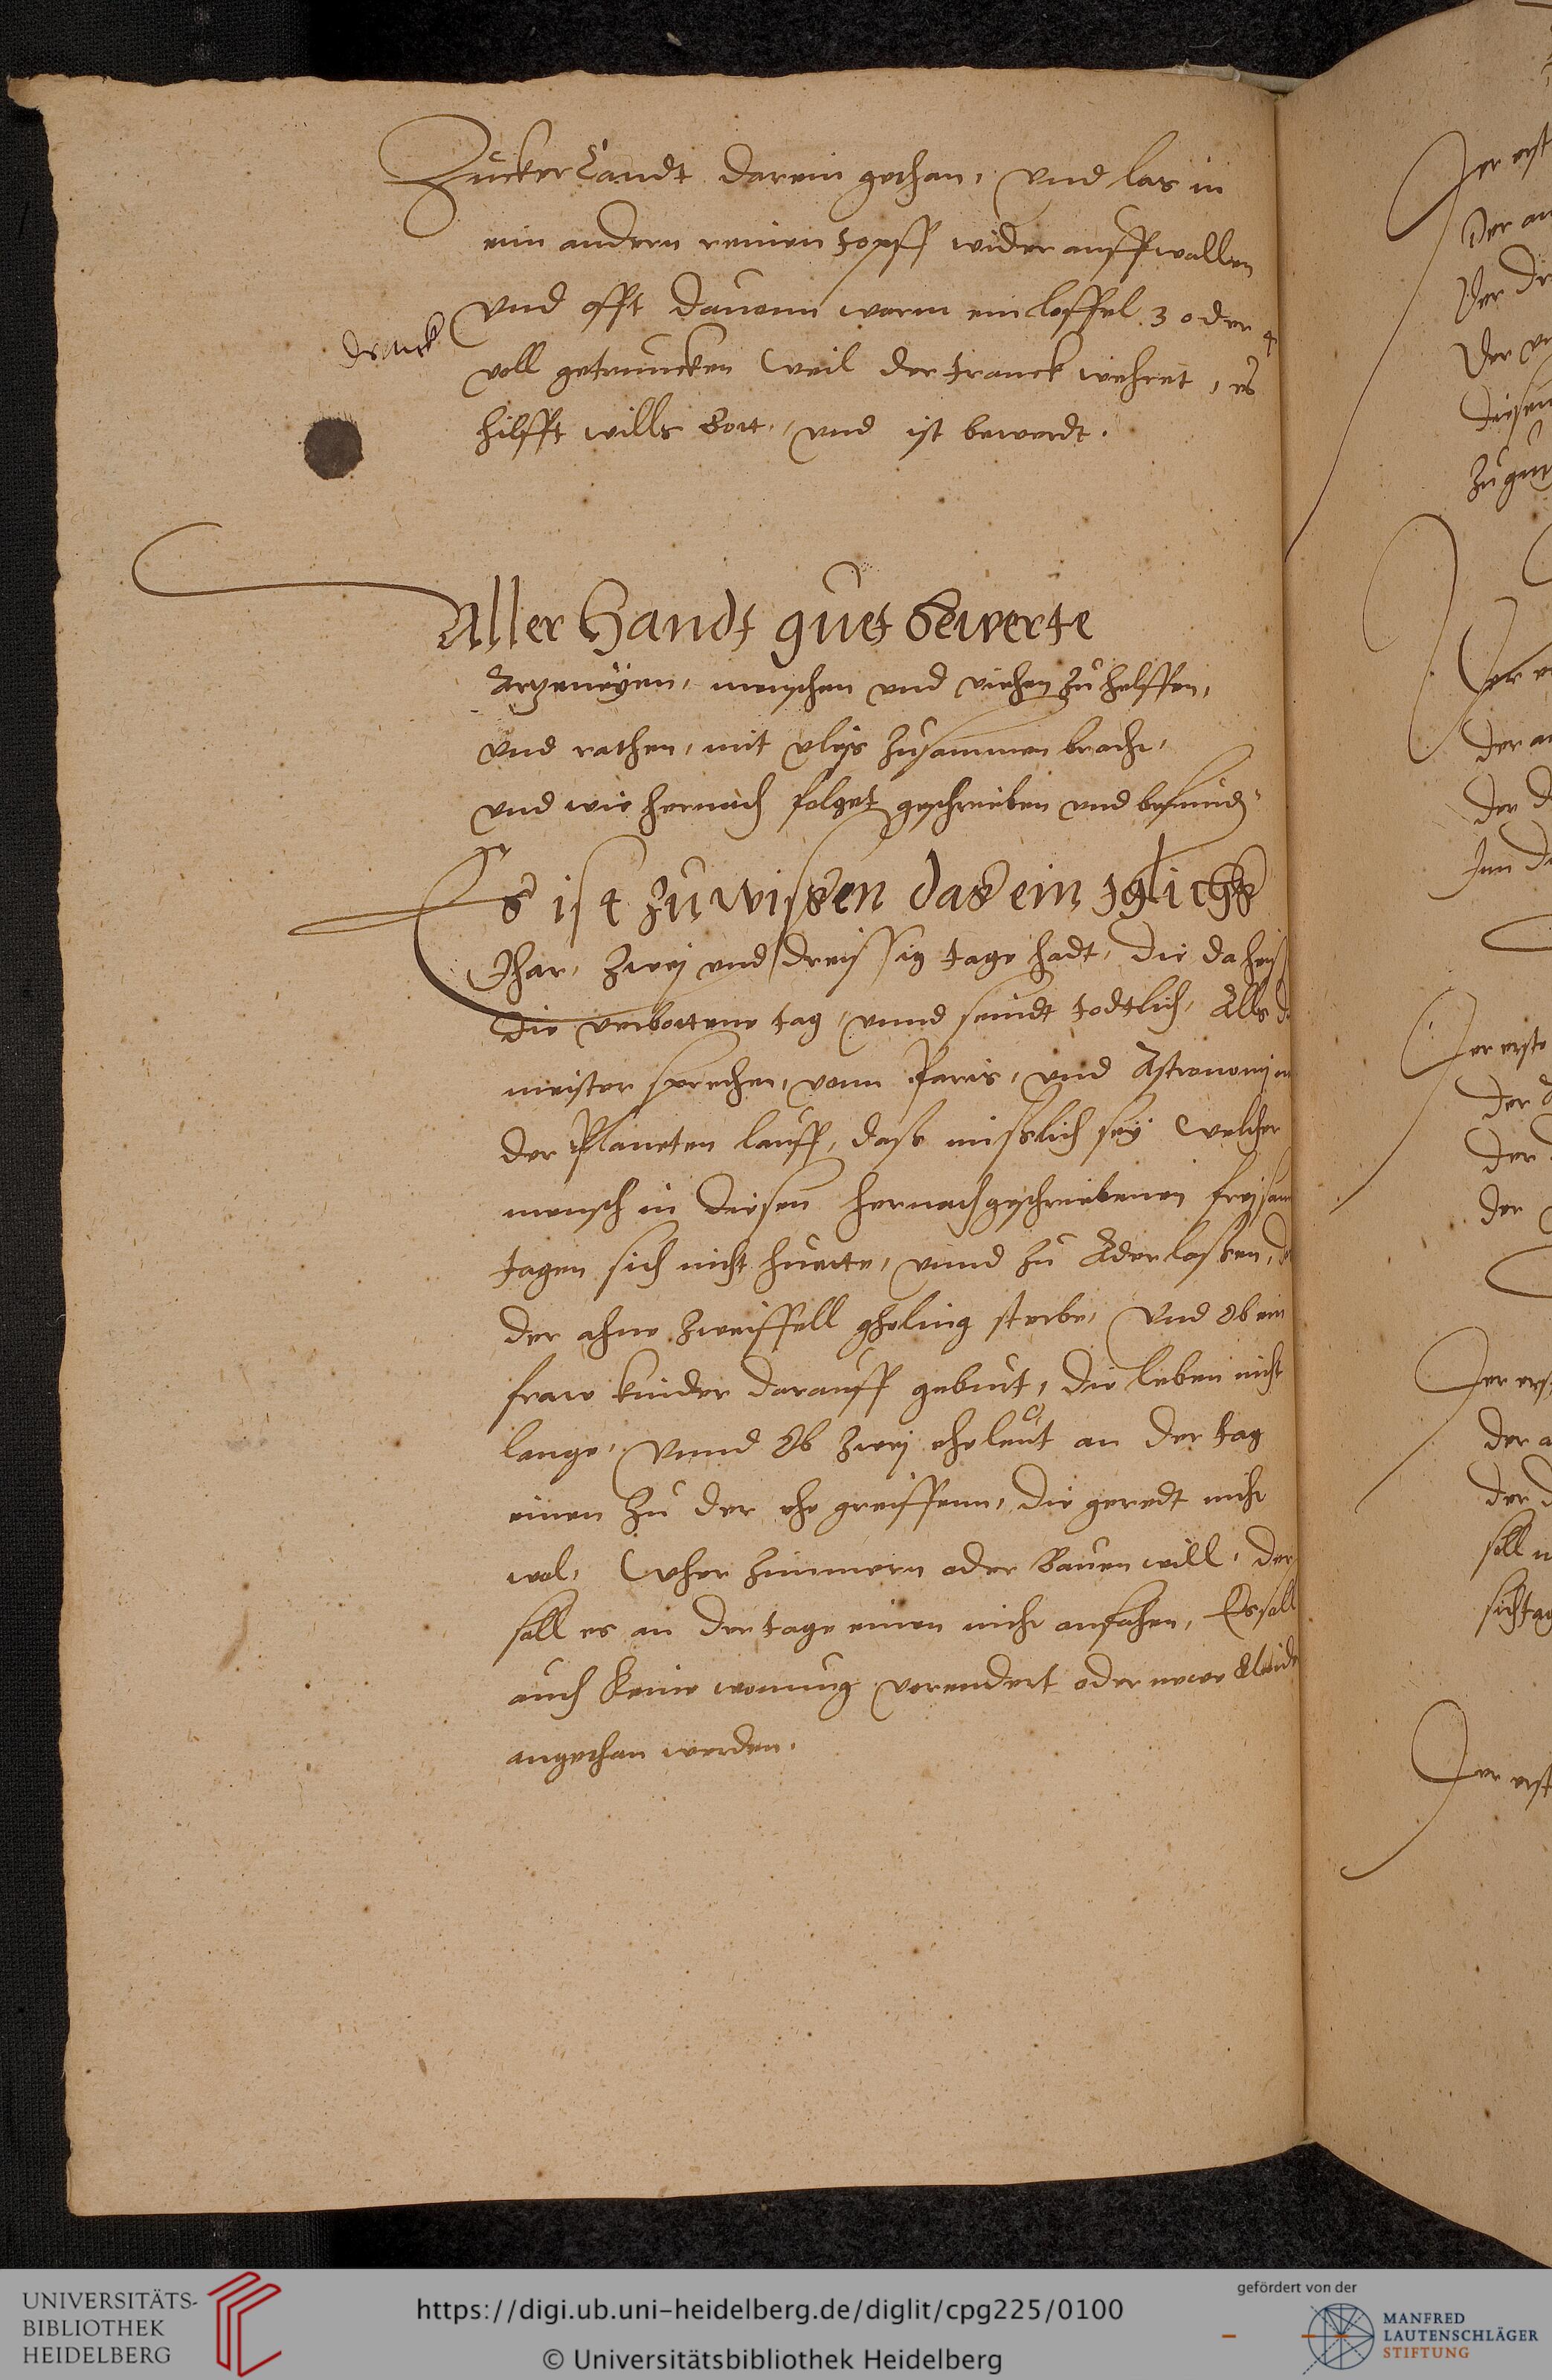 Zucker Candt darein gethan, Vnd las in
ein andern reinen topff wider auffwallen
Vnd offt dauonn warm ein loffel 3 oder 4
voll getruncken Weil der tranck wehret, es
hilfft wills Gott, vnd ist bewerdt.
Aller Handt guet Bewerte
Artzeneyen, menschen vnd viehen zu helffen,
vnd rathen, mit vleis zusammen bracht,
vnd wie hernach folget geschrieben vnd
Es ist zu wissen das ein Iglichs
Jhar, zwej vnd dreissig tage hadt, die da
die verbottene tag, vnnd seindt todtlich, Alls
meister sprechen, vonn Paris, vnd
der Planeten lauff, dass misslich sey Welcher
mensch in diesen hernachgeschriebenen
tagen sich nicht huette, vnnd zu Aderlassen,
der ahne zweiffell gheling sterbe, Vnd Ob ein
fraw kinder darauff geburt, die leben nicht
lange, Vnnd Ob zwej eheleut an der tag
einen zu der ehe greiffenn, die geredt nicht
wol, Wher zimmern oder Bauen will, der
soll es an der tage einen nicht anfahen, Es soll
auch keine wonung verendert oder newe kleider
angethan werden.
UNIVERSITÄTS-
BIBLIOTHEK
HEIDELBERG
https://digi.ub.uni-heidelberg.de/diglit/cpg225/0100
© Universitätsbibliothek Heidelberg
gefördert von der
MANFRED
LAUTENSCHLÄGER
STIFTUNG